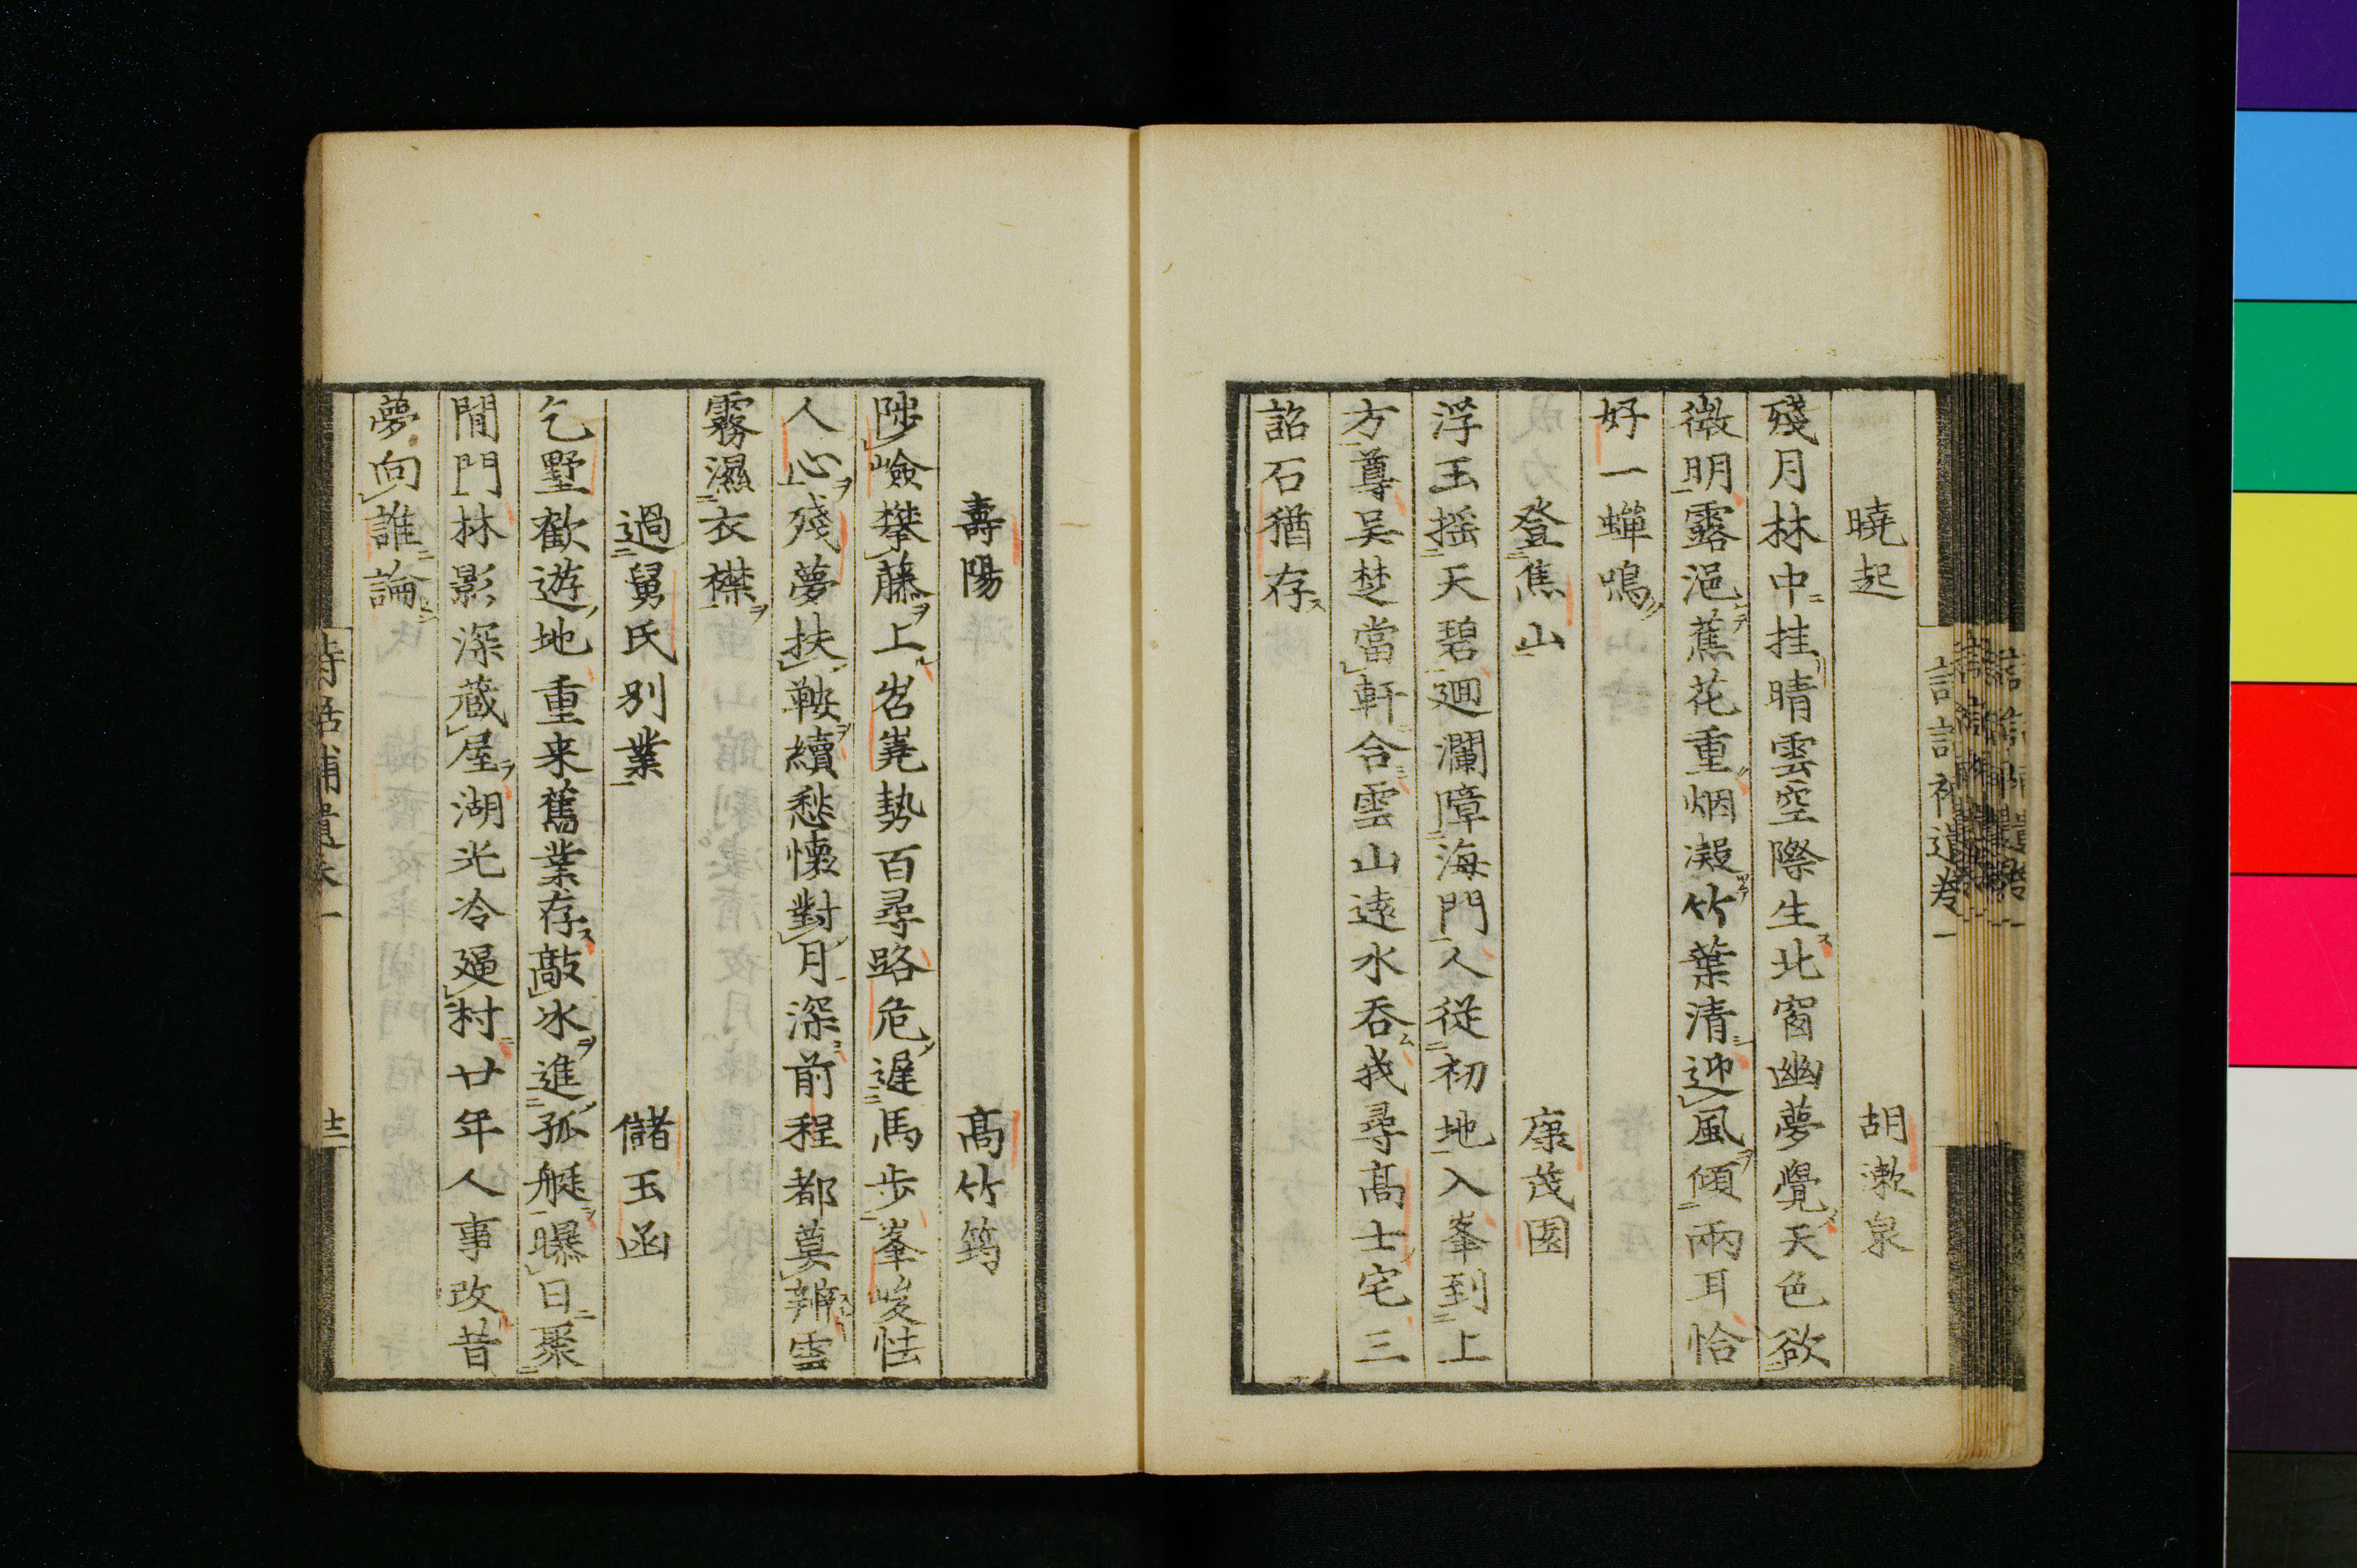 曉起　胡漱泉
殘月林中挂晴雲空際生北窗幽夢覺天色欲
微明露浥蕉花重烟凝竹葉清迎風傾兩耳恰
好一蟬鳴
登焦山　康茂園
浮玉搖天碧廻瀾障海門人從初地入峯到上
方尊吳楚當軒合雲山遠水吞我尋髙士宅三
詔石猶存
壽陽　髙竹筠
陟嶮攀藤上岧嶤勢百尋路危遲馬步峯峻怯
人心殘夢扶鞍續愁懷對月深前程都莫辨雲
霧濕衣襟
過舅氏別業　儲玉函
乞墅歡遊地重来舊業存敲冰進孤艇曝日聚
閒門林影深藏屋湖光冷逼村廿年人事改昔
夢向誰論
詩話補遺卷一　十二